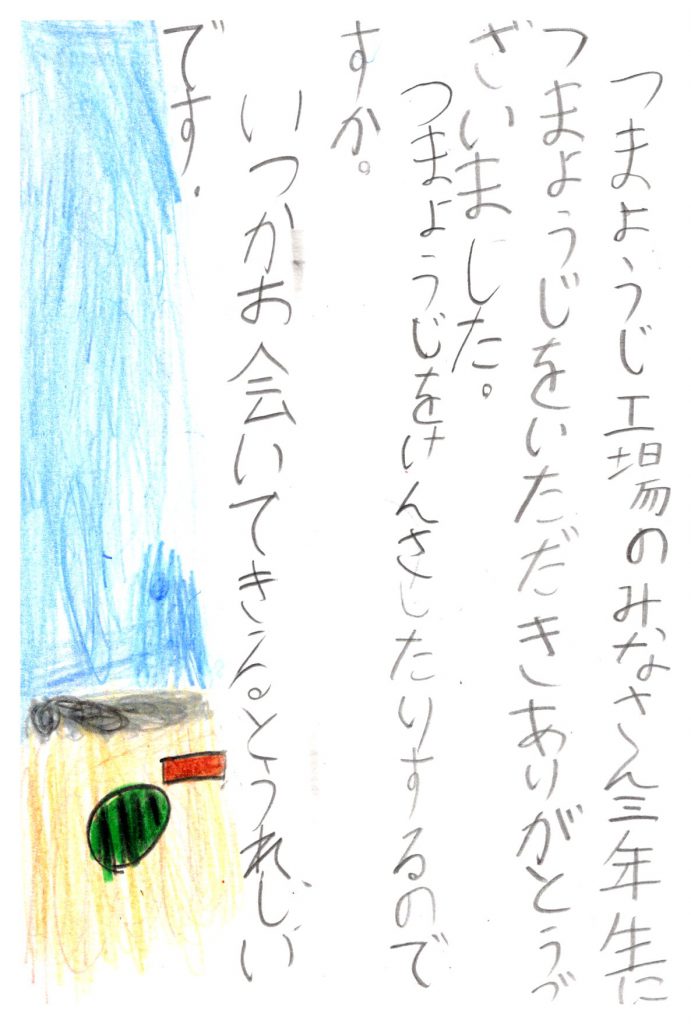 つまようじ工場のみなさん三年生に
つまようじをいただきありがとうご
ざいました。
つまようじをけんさしたりするので
すか。
いつかお会いできるとうれしい
です.